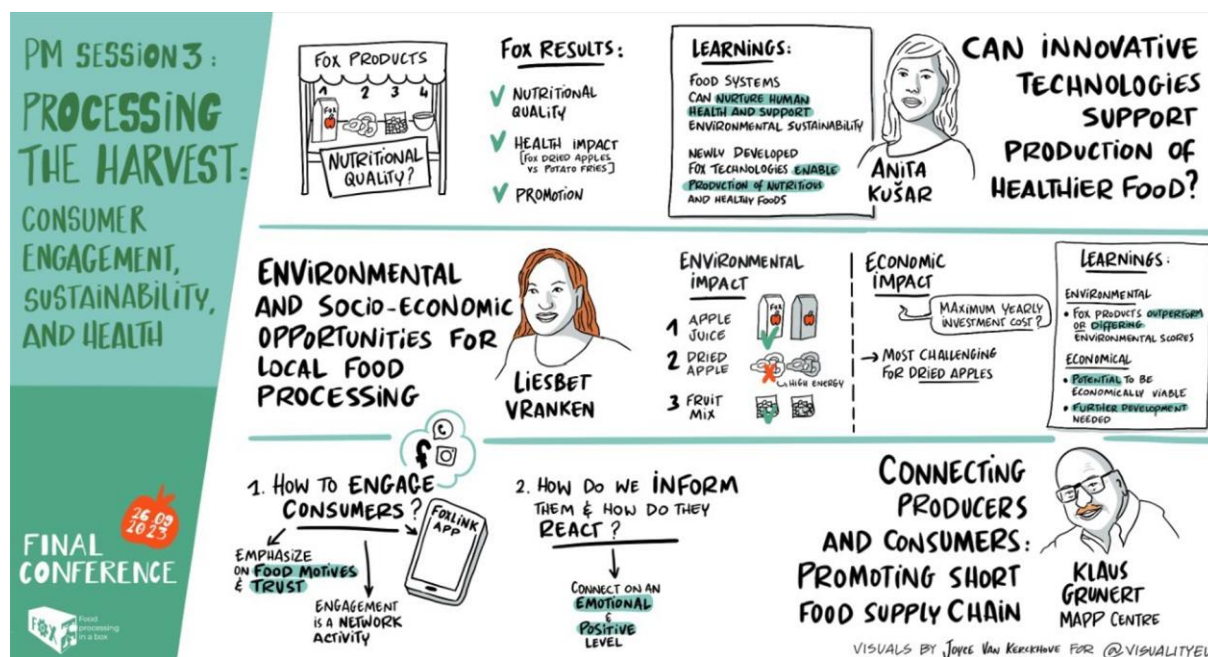 PM SESSION 3:
PROCESSING
THE HARVEST:
CONSUMER
ENGAGEMENT,
SUSTAINABILITY,
AND HEALTH
26.09
2023
FINAL
CONFERENCE
FOX
Food
processing
in a box
FOX PRODUCTS
1 2 3 4
FOX
NUTRITIONAL
QUALITY?
FOX RESULTS:
NUTRITIONAL
QUALITY
HEALTH IMPACT
[FOX DRIED APPLES
VS POTATO FRIES]
PROMOTION
LEARNINGS:
FOOD SYSTEMS
CAN NURTURE HUMAN
HEALTH AND SUPPORT
ENVIRONMENTAL SUSTAINABILITY
NEWLY DEVELOPED
FOX TECHNOLOGIES ENABLE
PRODUCTION OF NUTRITIOUS
AND HEALTHY FOODS
ANITA
KUŠAR
CAN INNOVATIVE
TECHNOLOGIES
SUPPORT
PRODUCTION OF
HEALTHIER FOOD?
ENVIRONMENTAL
AND SOCIO-ECONOMIC
OPPORTUNITIES FOR
LOCAL FOOD
PROCESSING
LIESBET
VRANKEN
ENVIRONMENTAL
IMPACT
1 APPLE
JUICE
FOX
2 DRIED
APPLE
HIGH ENERGY
3 FRUIT
MIX
ECONOMIC
IMPACT
MAXIMUM YEARLY
INVESTMENT COST?
→ MOST CHALLENGING
FOR DRIED APPLES
LEARNINGS:
ENVIRONMENTAL
• FOX PRODUCTS OUTPERFORM
OR DIFFERING
ENVIRONMENTAL SCORES
ECONOMICAL
• POTENTIAL TO BE
ECONOMICALLY VIABLE
• FURTHER DEVELOPMENT
NEEDED
1. HOW TO ENGAGE
CONSUMERS?
FOXLINK
APP
EMPHASIZE
ON FOOD MOTIVES
& TRUST
ENGAGEMENT
IS A NETWORK
ACTIVITY
2. HOW DO WE INFORM
THEM & HOW DO THEY
REACT?
CONNECT ON AN
EMOTIONAL
&
POSITIVE
LEVEL
CONNECTING
PRODUCERS
AND CONSUMERS:
PROMOTING SHORT
FOOD SUPPLY CHAIN
KLAUS
GRUNERT
MAPP CENTRE
VISUALS BY JOYCE VAN KERCKHOVE FOR @VISUALITYEU